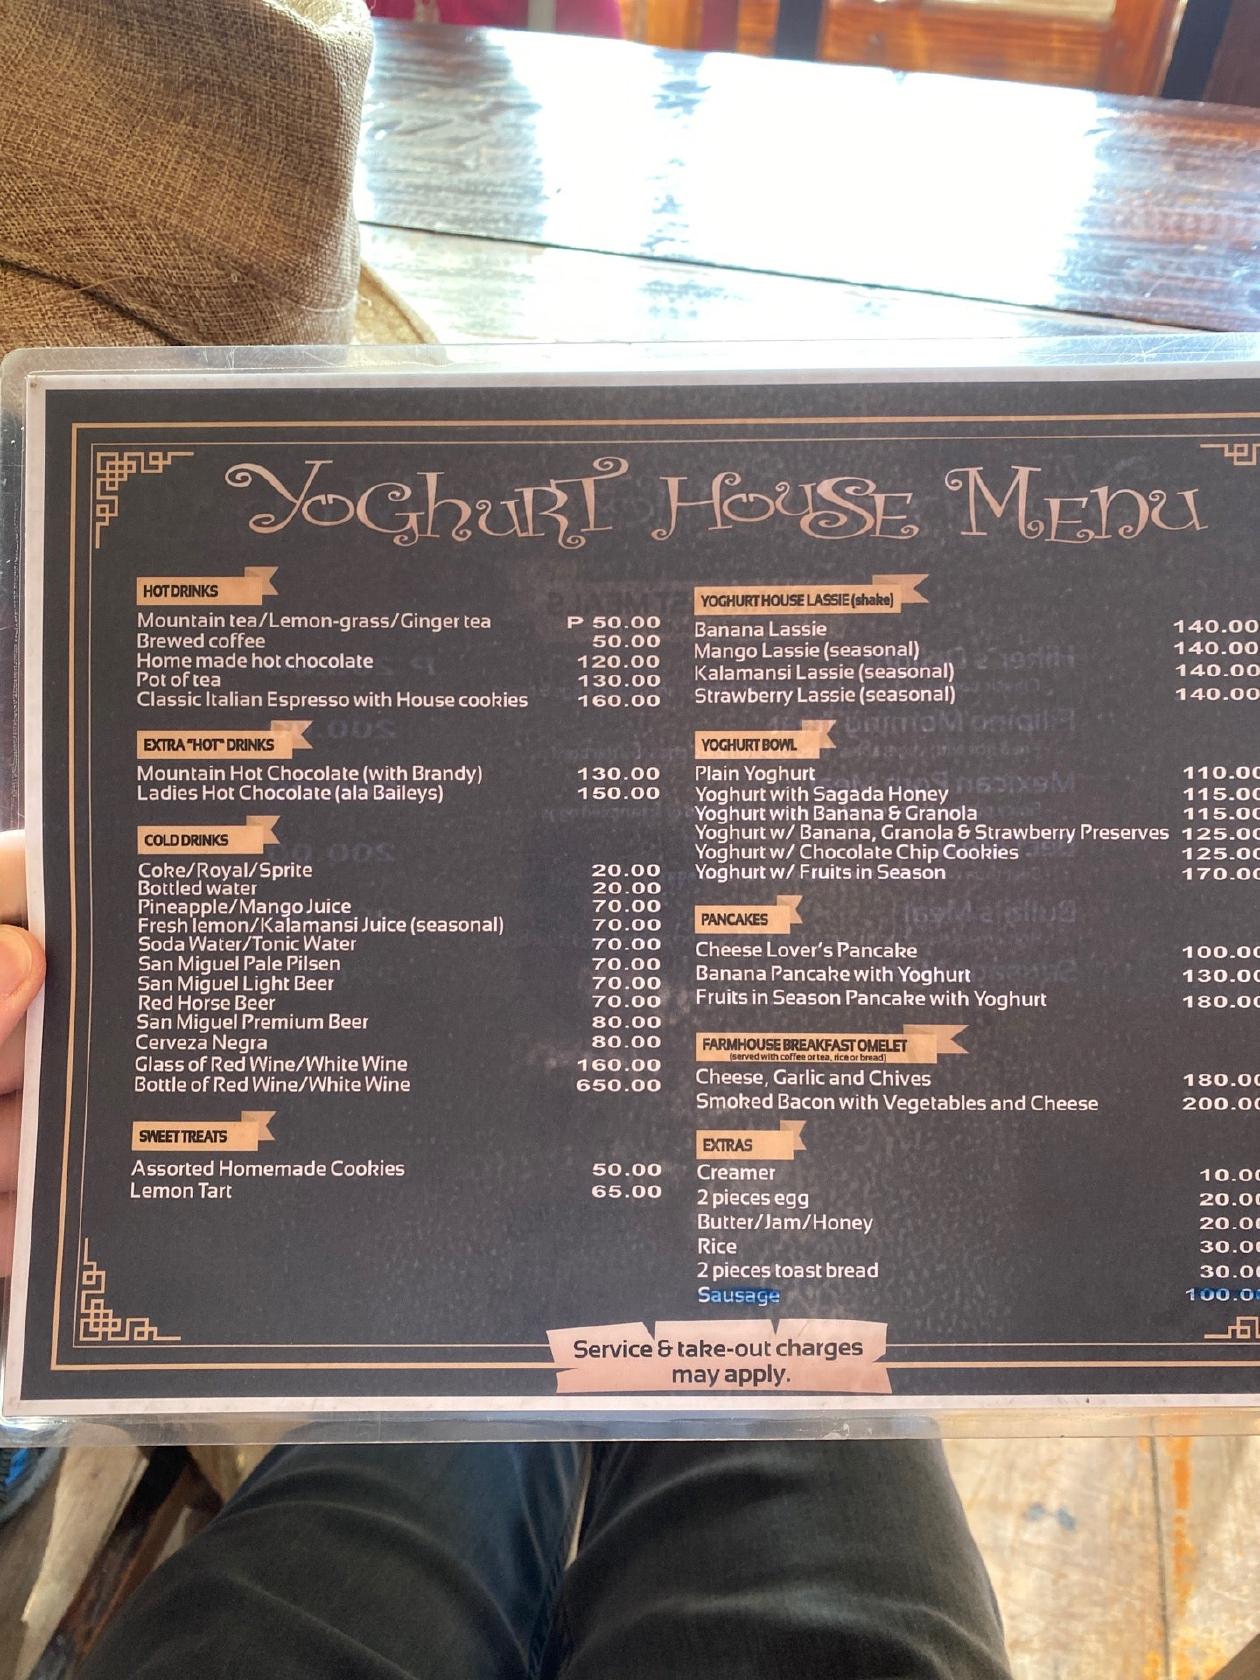 Yoghurt House Menu
HOT DRINKS
Mountain tea/Lemon-grass/Ginger tea P 50.00
Brewed coffee 50.00
Home made hot chocolate 120.00
Pot of tea 130.00
Classic Italian Espresso with House cookies 160.00
EXTRA "HOT" DRINKS
Mountain Hot Chocolate (with Brandy) 130.00
Ladies Hot Chocolate (ala Baileys) 150.00
COLD DRINKS
Coke/Royal/Sprite 20.00
Bottled water 20.00
Pineapple/Mango Juice 70.00
Fresh lemon/Kalamansi Juice (seasonal) 70.00
Soda Water/Tonic Water 70.00
San Miguel Pale Pilsen 70.00
San Miguel Light Beer 70.00
Red Horse Beer 70.00
San Miguel Premium Beer 80.00
Cerveza Negra 80.00
Glass of Red Wine/White Wine 160.00
Bottle of Red Wine/White Wine 650.00
SWEET TREATS
Assorted Homemade Cookies 50.00
Lemon Tart 65.00
YOGHURT HOUSE LASSIE (shake)
Banana Lassie 140.00
Mango Lassie (seasonal) 140.00
Kalamansi Lassie (seasonal) 140.00
Strawberry Lassie (seasonal) 140.00
YOGHURT BOWL
Plain Yoghurt 110.00
Yoghurt with Sagada Honey 115.00
Yoghurt with Banana & Granola 115.00
Yoghurt w/ Banana, Granola & Strawberry Preserves 125.00
Yoghurt w/ Chocolate Chip Cookies 125.00
Yoghurt w/ Fruits in Season 170.00
PANCAKES
Cheese Lover's Pancake 100.00
Banana Pancake with Yoghurt 130.00
Fruits in Season Pancake with Yoghurt 180.00
FARMHOUSE BREAKFAST OMELET
(served with coffee or tea, rice or bread)
Cheese, Garlic and Chives 180.00
Smoked Bacon with Vegetables and Cheese 200.00
EXTRAS
Creamer 10.00
2 pieces egg 20.00
Butter/Jam/Honey 20.00
Rice 30.00
2 pieces toast bread 30.00
Sausage 100.00
Service & take-out charges
may apply.